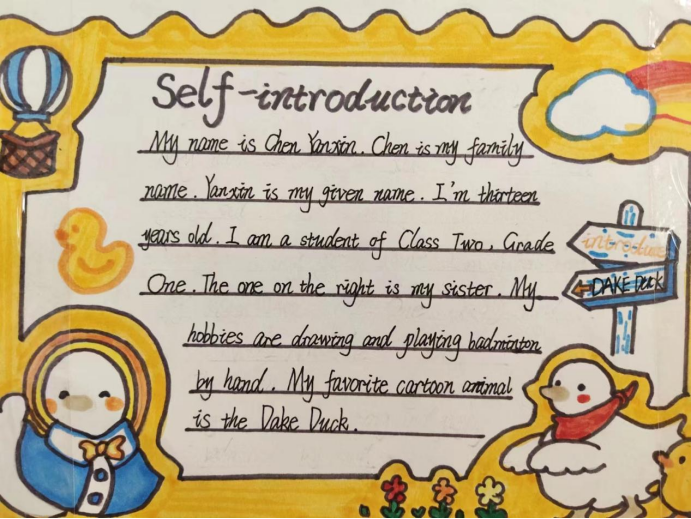 Self-introduction
My name is Chen Yanxin. Chen is my family
name. Yanxin is my given name. I'm thirteen
years old. I am a student of Class Two, Grade
introduce
One. The one on the right is my sister. My
DAKE Duck
hobbies are drawing and playing badminton
by hand. My favorite cartoon animal
is the Dake Duck.